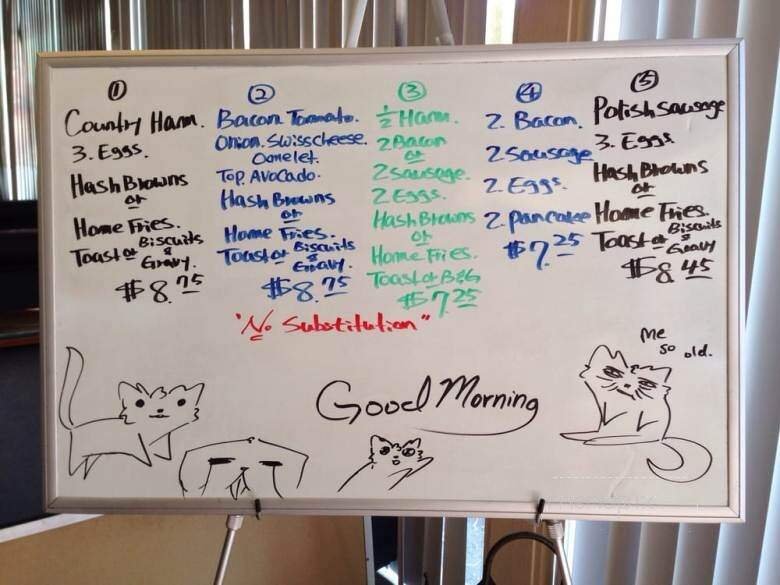 ①
Country Ham.
3. Eggs.
Hash Browns
or
Home Fries.
Toast or Biscuits
& Gravy.
$8.75
②
Bacon Tomato.
Onion. Swiss cheese.
Omelet.
Top. Avocado.
Hash Browns
or
Home Fries.
Toast or Biscuits
& Gravy.
$8.75
③
½ Ham.
2 Bacon
or
2 Sausage.
2 Eggs.
Hash Browns
or
Home Fries.
Toast or B&G
$7.25
④
2. Bacon.
2 Sausage
2. Eggs.
2. pancake
$7.25
⑤
Polish Sausage
3. Eggs.
Hash Browns
or
Home Fries.
Toast or Biscuits
& Gravy
$8.45
"No Substitution"
Good Morning
me
so old.